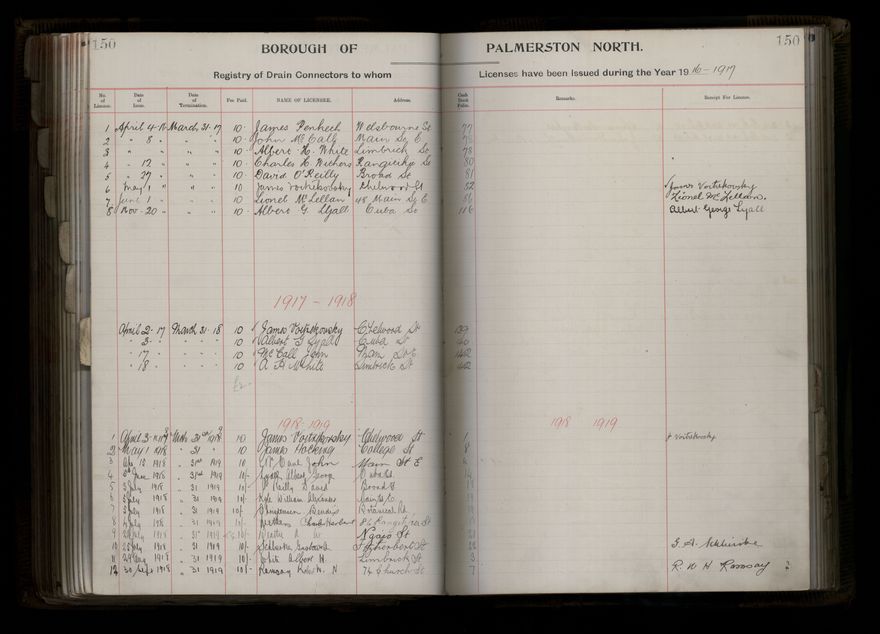 150
150
BOROUGH OF PALMERSTON NORTH.
Registry of Drain Connectors to whom Licenses have been Issued during the Year 1916-1917
No. of License. Date of Issue. Date of Termination. Fee Paid. NAME OF LICENSEE. Address. Cash Book Folio. Remarks. Receipt For License.
1 April 4-16 March 31-17 10 James Penhech Welsbourne St 77
2 " 8 " " " 10 John McCall Main St E 78
3 " " " " " 10 Albert H. White Limbrick St 78
4 " 12 " " " 10 Charles H. Withers Rangitikei St 80
5 " 27 " " " 10 David O'Reilly Broad St 81
6 May 1 " " " 10 James Voitrkovsky Chelwood St 82 James Voitrkovsky
7 June 1 " " " 10 Lionel McLellan 48 Main St E 86 Lionel McLellan.
8 Nov-20 " " " 10 Albert G Lyall Cuba St 116 Albert George Lyall
1917-1918
April 2-17 March 31-18 10 James Voitrkovsky Chelwood St 139
" 3 10 Albert G Lyall Cuba St 140
" 17 10 McCall John Main St E 142
" 18 10 A H White Limbrick St 142
£2
1918-1919 1918 1919
1 April 3-1918 March 31st 1919 10 James Voitrkovsky Chelwood St 1 J Voitrkovsky
2 May 1 1918 " 31 " 10 James Hocking College St 8
3 1918 " 31st 1919 10 McCall John Main St E
4 June 1918 " 31st 1919 10/- Lyall Albert George Cuba St 14
5 3 July 1918 " 31 1919 10/- O'Reilly David Broad St 19
6 3 July 1918 " 31 1919 10/- Kyle William Alexander 19
7 3 July 1918 " 31 1919 10/- Botanical Rd 19
8 July 1918 " 31 1919 10/- Withers Charles Herbert 86 Rangitikei St
9 July 1918 " 31st 1919 Ngaio St 21
10 25 July 1918 " 31 1919 10/- Fitzherbert St 22
11 29 Aug 1918 " 31 1919 10/- White Albert H. Limbrick St 3
12 30 Sept 1918 " 31 1919 10/- Ramsay Robt W. N 74 Church St 7 R. W H Ramsay